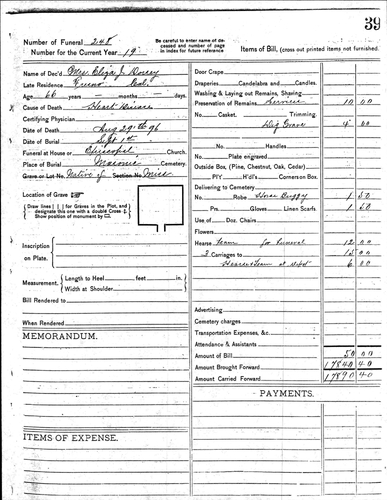 39
Number of Funeral 248
Number for the Current Year 19
Be careful to enter name de-
ceased and number of page
in index for future reference
Items of Bill, (cross out printed items not furnished.
Name of Dec'd Mrs Eliza J. Dorsey
Late Residence Cal.
Age 66 years months days
Cause of Death Heart Disease
Certifying Physician
Date of Death Aug 29th 96
Date of Burial Sept 1st
Funeral at House or Episcopel Church.
Place of Burial Masonic Cemetery.
Grave or Lot No. Native of Section No. Miss
Location of Grave
Draw lines [ ] for Graves in the Plot, and
designate this one with a double Cross
Show position of monument by
Inscription
on Plate.
Measurement. Length to Heel feet in.
Width at Shoulder
Bill Rendered to
When Rendered
MEMORANDUM.
ITEMS OF EXPENSE.
Door Crape
Draperies Candelabra Candles.
Washing & Laying out Remains, Shaving
Preservation of Remains Services 10 00
No. Casket. Trimming.
Dig Grave 4 00
No. Handles
Plate engraved
Outside Box, (Pine, Chestnut, Oak, Cedar)
P!Y H'dl's Corners on Box.
Delivering to Cemetery
No. Robe Hose Buggy 1 50
Prs. Gloves. Linen Scarfs. 1 50
Use of Doz. Chairs
Flowers
Hearse Team for Funeral 12 00
3 Carriages to 15 00
Hearse & Team at Depot 6 00
Advertising
Cemetery charges
Transportation Expenses, &c.
Attendance & Assistants
Amount of Bill 50 00
Amount Brought Forward 17840 40
Amount Carried Forward 17890 40
PAYMENTS.